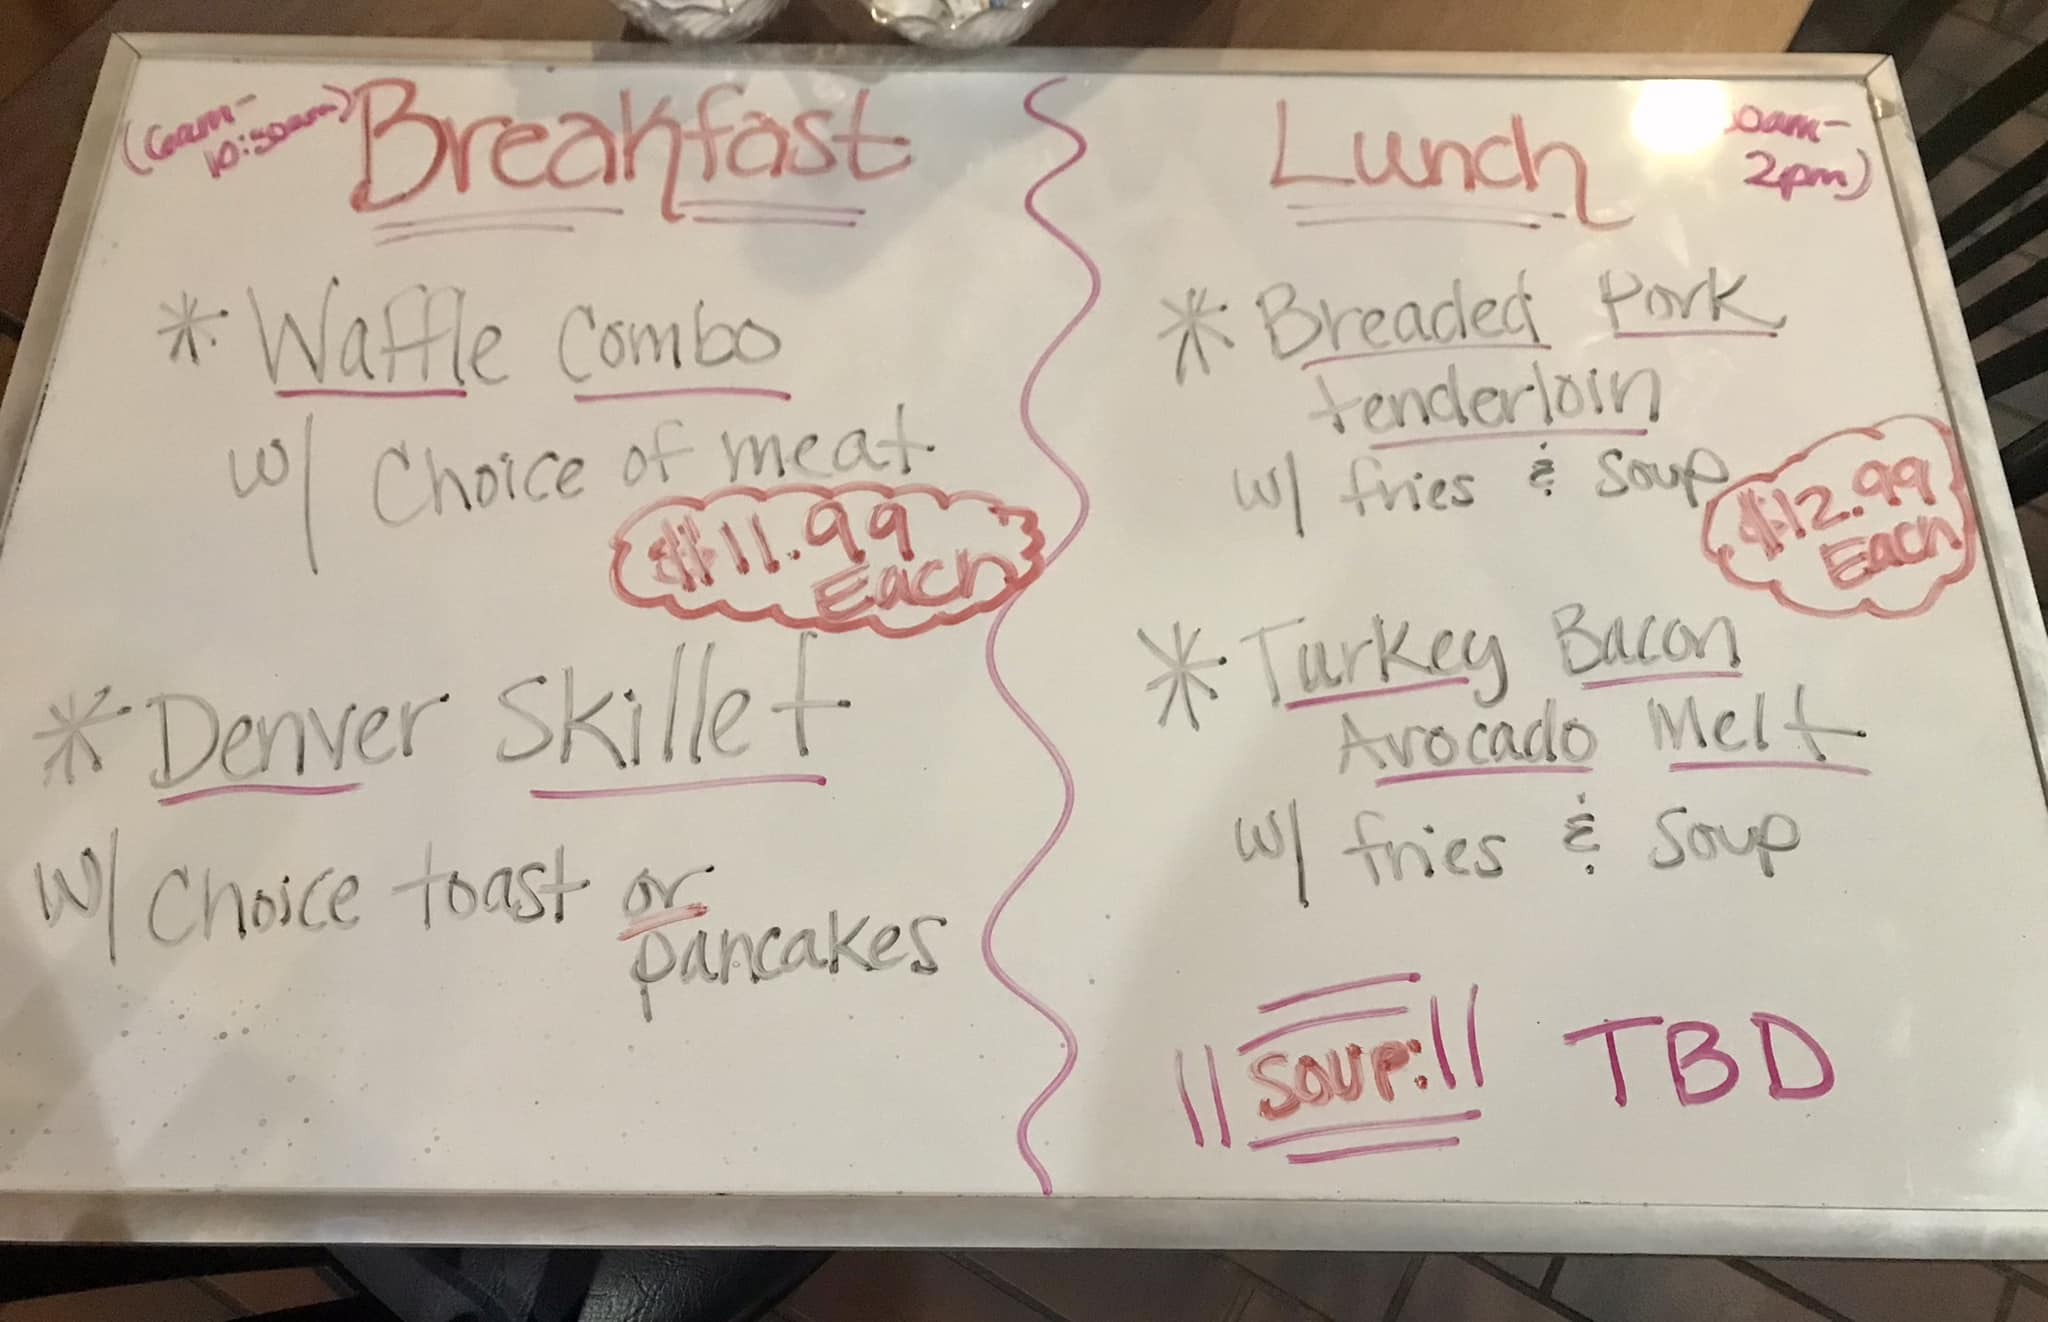 (6am-
10:30am)
Breakfast
* Waffle Combo
w/ Choice of meat
$11.99
Each
* Denver Skillet
w/ Choice toast or
pancakes
Lunch
0am-
2pm)
* Breaded Pork
tenderloin
w/ fries & Soup
$12.99
Each
* Turkey Bacon
Avocado Melt
w/ fries & Soup
SOUP: TBD